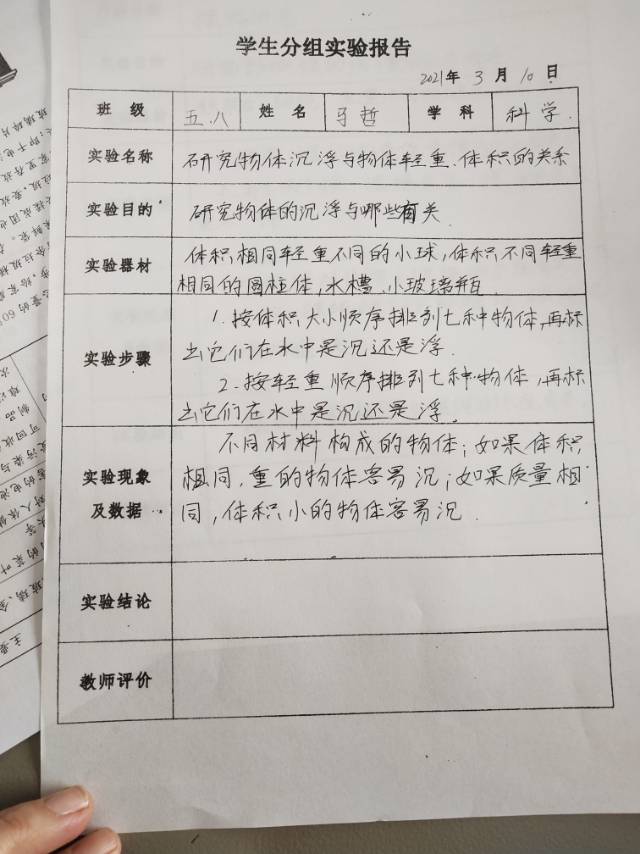 学生分组实验报告
2021年 3 月 10 日
班 级 五.八 姓 名 马哲 学 科 科学.
实验名称 研究物体沉浮与物体轻重.体积的关系
实验目的 研究物体的沉浮与哪些有关
实验器材 体积相同轻重不同的小球,体积不同轻重
相同的圆柱体,水槽.小玻璃瓶
1. 按体积大小顺序排列七种物体,再标
实验步骤 出它们在水中是沉还是浮.
2. 按轻重顺序排列七种物体,再标
出它们在水中是沉还是浮.
不同材料构成的物体;如果体积
实验现象 相同,重的物体容易沉;如果质量相
及数据 同,体积小的物体容易沉.
实验结论
教师评价